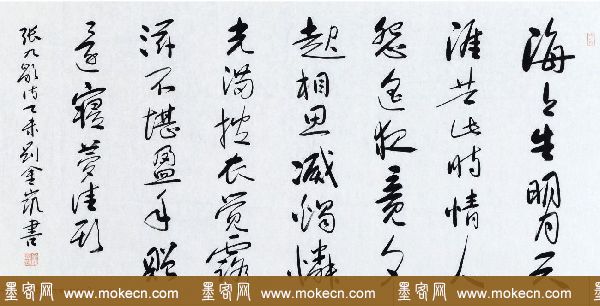 海上生明月天
涯共此時情人
怨遥夜竟夕
起相思滅燭憐
光满披衣覺露
滋不堪盈手贈
還寝夢佳期
张九齡诗乙未刘金凯書
墨客网 www.mokecn.com 墨客网 www.mokecn.com 墨客网 www.mokecn.com